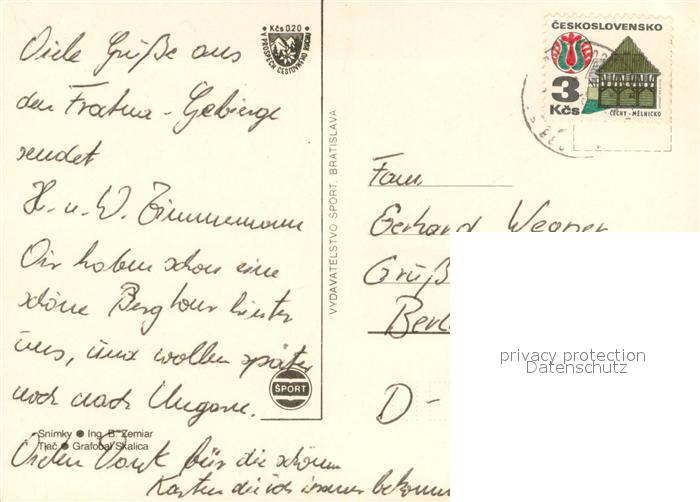 Viele Grüße aus
den Fratna-Gebirge
sendet
H. u. W. Zimmermann
Wir haben schon eine
schöne Bergtour hinter
uns, und wollen später
noch nach Ungarn.
Vielen Dank für die schönen
Karten die ich immer bekomme
Kčs 0.20
V PROSPECH CESTOVNÉHO RUCHU
VYDAVATEĽSTVO ŠPORT, BRATISLAVA
ŠPORT
Snímky ● Ing. B. Zemiar
Tlač ● Grafobal Skalica
ČESKOSLOVENSKO
3
Kčs
ČECHY - MĚLNICKO
Fam.
Gerhard Wegner
Grüß
Berl
D-
privacy protection
Datenschutz